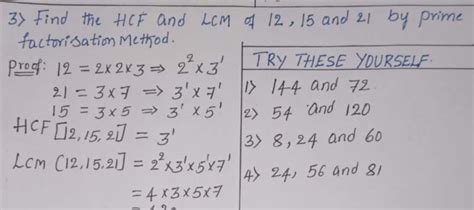 3) Find the HCF and LCM of 12, 15 and 21 by prime
factorisation Method.
Proof: 12 = 2×2×3 ⇒ 2²×3¹
21 = 3×7 ⇒ 3¹×7¹
15 = 3×5 ⇒ 3¹×5¹
HCF [12,15,21] = 3¹
LCM (12,15,21] = 2²×3¹×5¹×7¹
= 4×3×5×7
TRY THESE YOURSELF.
1) 144 and 72
2) 54 and 120
3) 8, 24 and 60
4) 24, 56 and 81